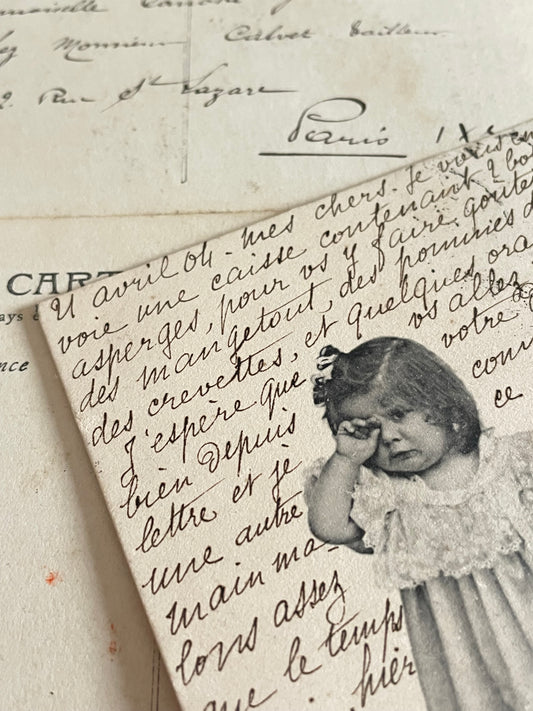 Monsieur Calvet Tailleur
Rue St Lazare
Paris IXe
CART
nce
avril 04 - mes chers. Je viens
voie une caisse contenant 2 bo
asperges, pour vs y faire goûter
des mangetout, des pommes d
des crevettes, et quelques ora
J'espère que vs allez
bien depuis votre
lettre et je com
une autre ce
main ma-
lons assez
que le temps
hier